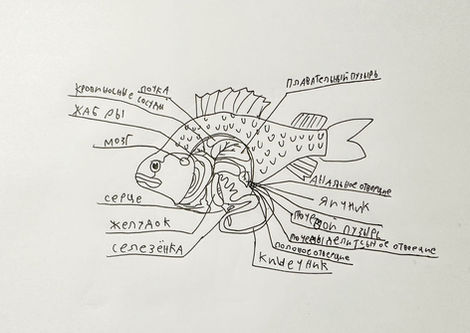 кровиносные почка
сосуды
жабры
мозг
плавательный пузырь
сердце
желудок
селезёнка
анальное отверстие
яичник
мочевой пузырь
половое отверстие
кишечник